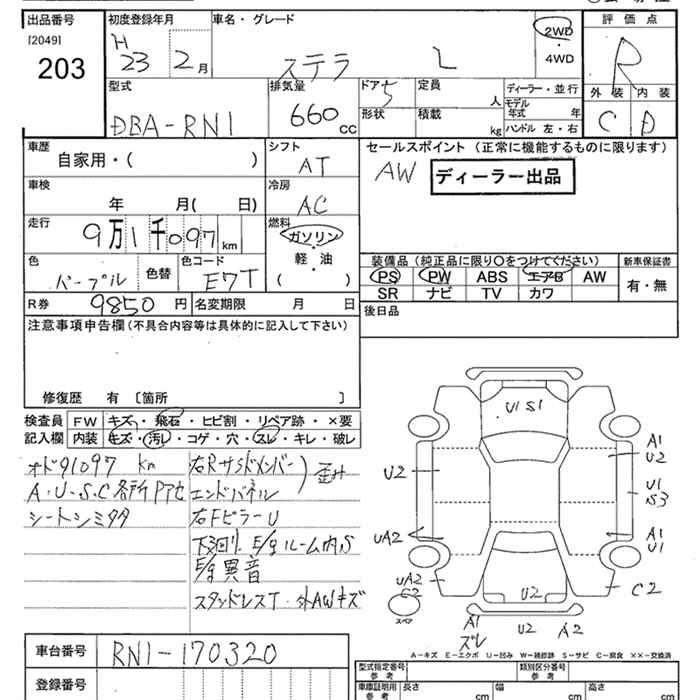 出品番号 初度登録年月 車名・グレード 2WD・4WD 評価点
[2049]
203 H23 2月 ステラ L R
外装 内装
C D
型式 排気量 ドア 定員 人 ディーラー・並行
DBA-RN1 660cc 5 形状 積載 kg モデル年式 年
ハンドル 左・右
車歴 シフト セールスポイント (正常に機能するものに限ります)
自家用・( ) AT AW ディーラー出品
車検 冷房
年 月( 日) AC
走行 燃料
9万1千097km ガソリン・軽油・( )
色 色替 色コード
パープル E7T
装備品 (純正品に限り○をつけてください) 新車保証書
PS PW ABS エアB AW 有・無
SR ナビ TV カワ
R券 9850円 名変期限 月 日
後日品
注意事項申告欄 (不具合内容等は具体的に記入して下さい)
修復歴 有 〔箇所 〕
検査員記入欄 FW キズ・飛石・ヒビ割・リペア跡・×要
内装 キズ・汚レ・コゲ・穴・スレ・キレ・破レ
オド91097 km
A・U・S・C各所
シートシミタタ
右Rサイドメンバー
エンドパネル
歪み
右FピラーU
下廻り、E/gルーム内S
E/g異音
スタッドレスT・外AWキズ
U1 S1
A1
U2
U2
U1
S3
UA2
A1
U1
UA2
C2
U2
C2
スペア
A1
ズレ
U2
A2
A-キズ E-エクボ U-凹み W-補修跡 S-サビ C-腐食 XX-交換済
車台番号 RN1-170320
登録番号
型式指定番号 参考 類別区分番号 参考
車庫証明用 参考 長さ cm 幅 cm 高さ cm